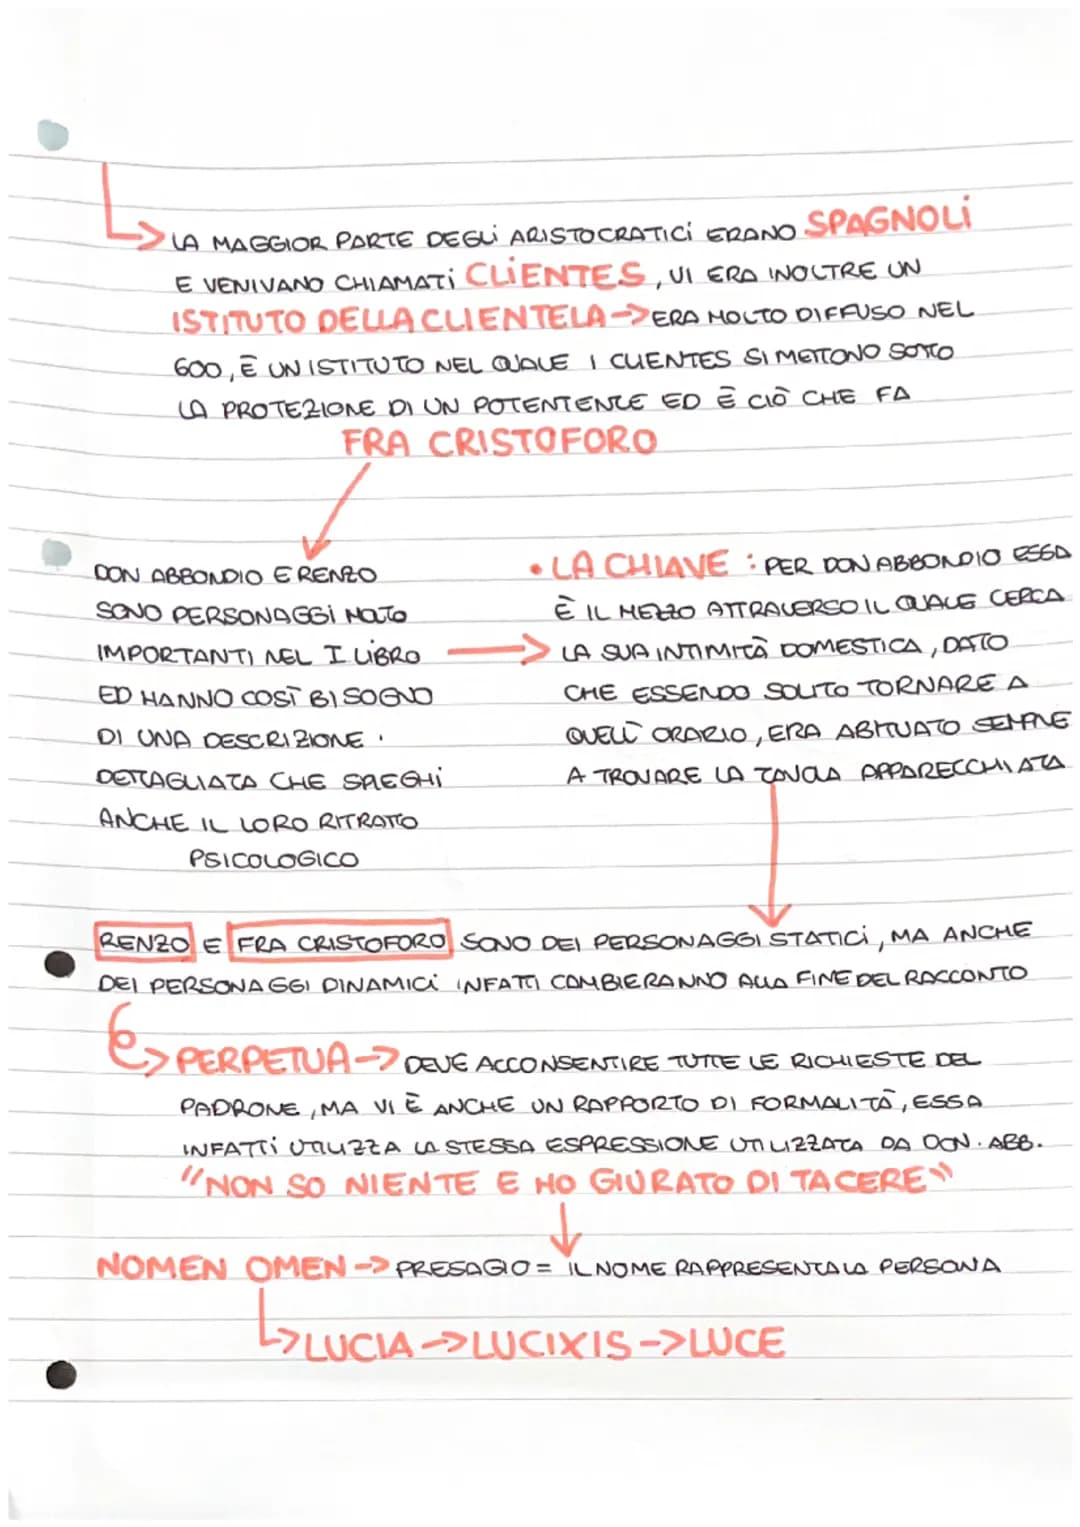 LA MAGGIOR PARTE DEGLI ARISTOCRATICI ERANO SPAGNOLI
E VENIVANO CHIAMATI CLIENTES, VI ERA INOLTRE UN
ISTITUTO DELLA CLIENTELA -> ERA MOLTO DIFFUSO NEL
600, È UN ISTITUTO NEL QUALE I CLIENTES SI METTONO SOTTO
LA PROTEZIONE DI UN POTENTENTE ED È CIÒ CHE FA
FRA CRISTOFORO
DON ABBONDIO E RENZO
SONO PERSONAGGI MOLTO
IMPORTANTI NEL I LIBRO
ED HANNO COSÌ BISOGNO
DI UNA DESCRIZIONE
DETTAGLIATA CHE SPIEGHI
ANCHE IL LORO RITRATTO
PSICOLOGICO
• LA CHIAVE : PER DON ABBONDIO ESSA
È IL MEZZO ATTRAVERSO IL QUALE CERCA
LA SUA INTIMITÀ DOMESTICA, DATO
CHE ESSENDO SOLITO TORNARE A
QUELL'ORARIO, ERA ABITUATO SEMPRE
A TROVARE LA TAVOLA APPARECCHIATA
RENZO E FRA CRISTOFORO SONO DEI PERSONAGGI STATICI, MA ANCHE
DEI PERSONAGGI DINAMICI INFATTI CAMBIERANNO ALLA FINE DEL RACCONTO
PERPETUA -> DEVE ACCONSENTIRE TUTTE LE RICHIESTE DEL
PADRONE, MA VI È ANCHE UN RAPPORTO DI FORMALITÀ, ESSA
INFATTI UTILIZZA LA STESSA ESPRESSIONE UTILIZZATA DA DON. ABB.
"NON SO NIENTE E HO GIURATO DI TACERE"
NOMEN OMEN -> PRESAGIO = IL NOME RAPPRESENTA LA PERSONA
LUCIA -> LUCIXIS -> LUCE